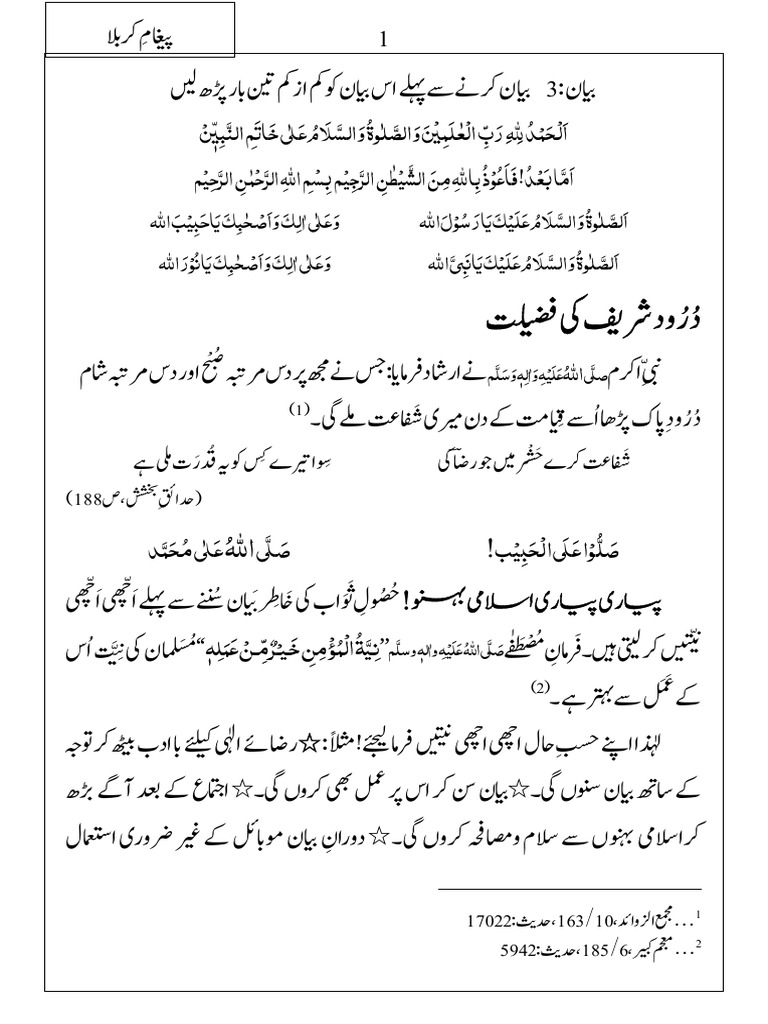 پیغامِ کربلا
1
بیان:3 بیان کرنے سے پہلے اس بیان کو کم از کم تین بار پڑھ لیں
اَلْحَمْدُ لِلّٰہِ رَبِّ الْعٰلَمِیْنَ وَالصَّلٰوۃُ وَالسَّلَامُ عَلٰی خَاتَمِ النَّبِیّٖنْ
اَمَّا بَعْدُ! فَاَعُوْذُ بِاللّٰہِ مِنَ الشَّیْطٰنِ الرَّجِیْمِ بِسْمِ اللّٰہِ الرَّحْمٰنِ الرَّحِیْمِ
اَلصَّلٰوۃُ وَالسَّلَامُ عَلَیْكَ یَا رَسُوْلَ اللّٰہ وَعَلٰی اٰلِكَ وَاَصْحٰبِكَ یَا حَبِیْبَ اللّٰہ
اَلصَّلٰوۃُ وَالسَّلَامُ عَلَیْكَ یَا نَبِیَّ اللّٰہ وَعَلٰی اٰلِكَ وَاَصْحٰبِكَ یَا نُوْرَ اللّٰہ
دُرُود شریف کی فضیلت
نبیِّ اکرم صلَّی اللّٰہُ عَلَیْہِ وَاٰلِہٖ وَسَلَّم نے ارشاد فرمایا: جس نے مجھ پر دس مرتبہ صُبْح اور دس مرتبہ شام
دُرُودِ پاک پڑھا اُسے قِیامت کے دن میری شَفاعت ملے گی۔(1)
شَفاعت کرے حَشْر میں جو رضاؔ کی سِوا تیرے کِس کو یہ قُدْرَت ملی ہے
(حدائقِ بخشش، ص188)
صَلُّوْا عَلَی الْحَبِیْب! صَلَّی اللّٰہُ عَلٰی مُحَمَّد
پیاری پیاری اسلامی بہنو! حُصُولِ ثَوَاب کی خَاطِر بَیان سُننے سے پہلے اَچّھی اَچّھی
نیّتیں کر لیتی ہیں۔ فَرمانِ مُصْطَفٰے صَلَّی اللّٰہُ عَلَیْہِ واٰلِہٖ وسلَّم ”نِیَّۃُ الْمُؤْمِنِ خَیْرٌ مِّنْ عَمَلِہٖ“ مُسَلمان کی نِیَّت اُس
کے عَمَل سے بہتر ہے۔(2)
لہٰذا اپنے حسبِ حال اچھی اچھی نیتیں فرما لیجئے! مثلاً: ☆رضائے الٰہی کیلئے با ادب بیٹھ کر توجہ
کے ساتھ بیان سنوں گی۔☆بیان سن کر اس پر عمل بھی کروں گی۔☆ اجتماع کے بعد آگے بڑھ
کر اسلامی بہنوں سے سلام و مصافحہ کروں گی۔☆ دورانِ بیان موبائل کے غیر ضروری استعمال
1... مجمع الزوائد، 10/163، حدیث:17022
2... معجم کبیر، 6/185، حدیث:5942